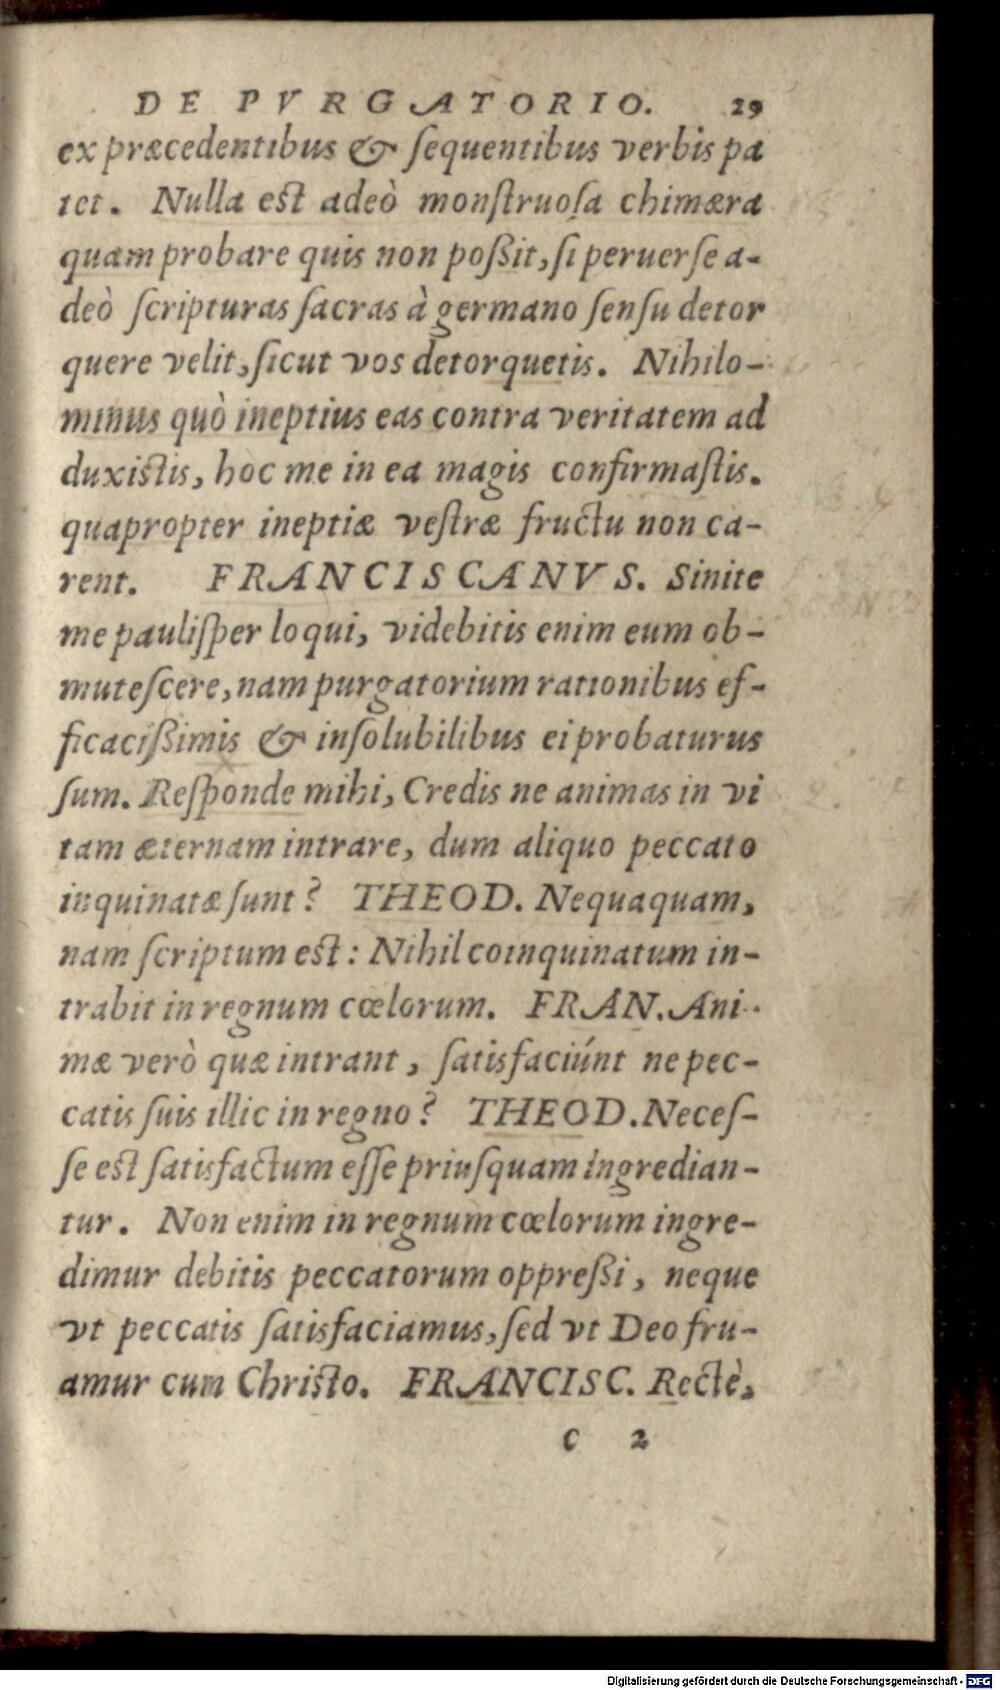 DE PVRGATORIO. 29
ex præcedentibus & ſequentibus verbis pa
tet. Nulla est adeò monſtruoſa chimæra
quam probare quis non poßit, ſi peruerſe a-
deò ſcripturas ſacras à germano ſenſu detor
quere velit, ſicut vos detorquetis. Nihilo-
minus quò ineptius eas contra veritatem ad
duxistis, hoc me in ea magis confirmaſtis.
quapropter ineptiæ veſtræ fructu non ca-
rent. FRANCISCANVS. Sinite
me pauliſper loqui, videbitis enim eum ob-
muteſcere, nam purgatorium rationibus ef-
ficacißimis & inſolubilibus ei probaturus
ſum. Reſponde mihi, Credis ne animas in vi
tam æternam intrare, dum aliquo peccato
inquinatæ ſunt? THEOD. Nequaquam,
nam ſcriptum est: Nihil coinquinatum in-
trabit in regnum cœlorum. FRAN. Ani-
mæ verò quæ intrant, ſatisfaciúnt ne pec-
catis ſuis illic in regno? THEOD. Neceſ-
ſe est ſatisfactum eſſe priuſquam ingredian-
tur. Non enim in regnum cœlorum ingre-
dimur debitis peccatorum oppreßi, neque
vt peccatis ſatisfaciamus, ſed vt Deo fru-
amur cum Christo. FRANCISC. Rectè,
c 2
Digitalisierung gefördert durch die Deutsche Forschungsgemeinschaft - DFG